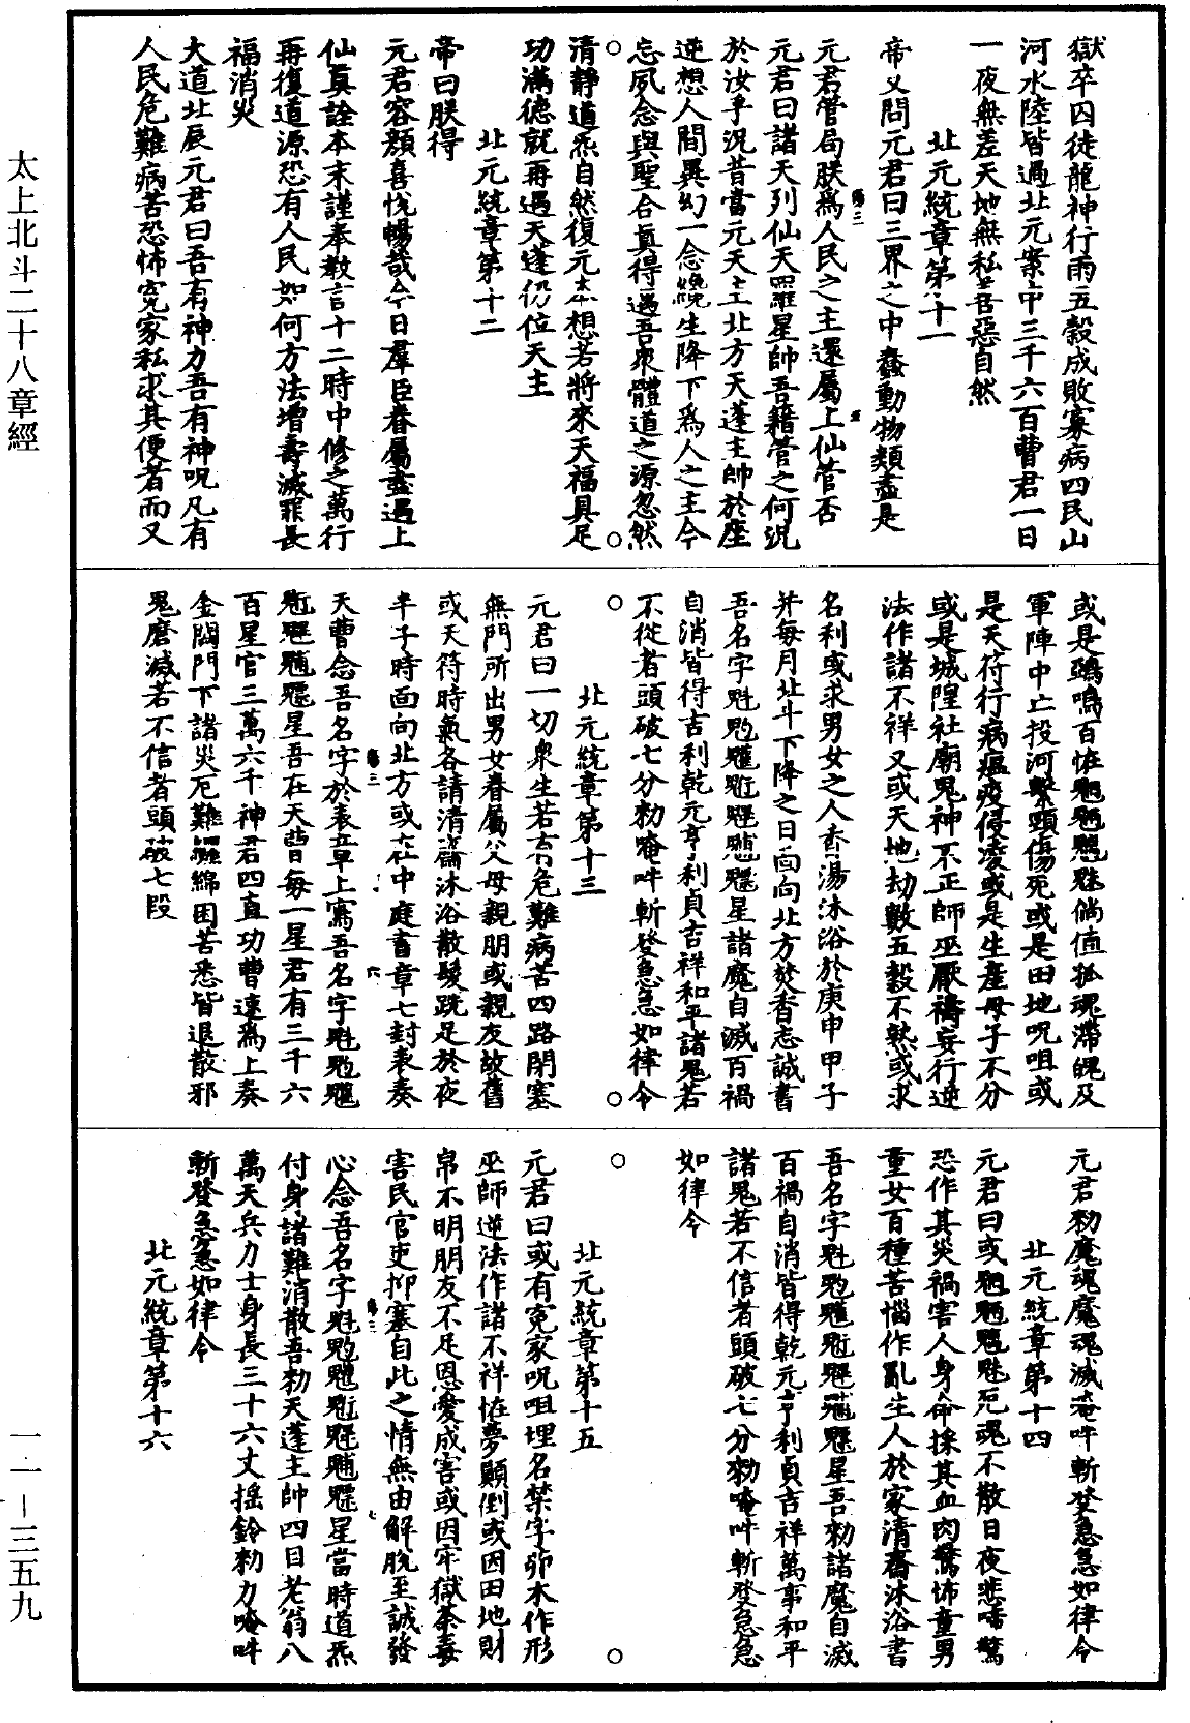 獄卒囚徒龍神行雨五穀成敗寡病四民山
河水陸皆過北元案中三千六百曹君一日
一夜無差天地無私善惡自然
北元統章第十一
帝又問元君曰三界之中蠢動物類盡是
元君管局朕爲人民之主還屬上仙管否
元君曰諸天列仙天羅星帥吾籍管之何況
於汝乎況昔當元天主北方天蓬主帥於座
逆想人間異幻一念纔生降下爲人之主今
忘夙念與聖合真得遇吾衆體道之源忽然
清靜道炁自然復元本想若將來天福具足
功滿德就再遇天蓬仍位天主
北元統章第十二
帝曰朕得
元君容顏喜悅暢哉今日羣臣眷屬盡遇上
仙真詮本末謹奉教言十二時中修之萬行
再復道源恐有人民如何方法增壽減罪長
福消災
大道北辰元君曰吾有神力吾有神呪凡有
人民危難病苦恐怖冤家私求其便者而又
或是鵶鳴百恠魍魎魑魅倘值孤魂滯魄及
軍陣中亡投河繫頸傷死或是田地呪咀或
是天符行病瘟疫侵凌或是生產母子不分
或是城隍社廟鬼神不正師巫厭禱妄行逆
法作諸不祥又或天地劫數五穀不熟或求
名利或求男女之人香湯沐浴於庚申甲子
并每月北斗下降之日面向北方焚香志誠書
吾名字魁𩲃䰢魓䰡魒魒星諸魔自滅百禍
自消皆得吉利乾元亨利貞吉祥和平諸鬼若
不從者頭破七分勑唵吽斬發急急如律令
北元統章第十三
元君曰一切衆生若有危難病苦四路閉塞
無門所出男女眷屬父母親朋或親友故舊
或天符時氣各請清齋沐浴散髮跣足於夜
半子時面向北方或在中庭書章七封表奏
天曹念吾名字於表章上寫吾名字
星吾在天曹每一星君有三千六
百星官三萬六千神君四直功曹速爲上奏
金闕門下諸災厄難纏綿困苦悉皆退散邪
鬼磨滅若不信者頭破七段
元君勑魔魂魔魂滅唵吽斬發急急如律令
北元統章第十四
元君曰或魍魎魑魅死魂不散日夜悲啼驚
恐作其災禍害人身命採其血肉驚怖童男
童女百種苦惱作亂生人於家清齋沐浴書
吾名字星吾勑諸魔自滅
百禍自消皆得乾元亨利貞吉祥萬事和平
諸鬼若不信者頭破七分勑唵吽斬發急急
如律令
北元統章第十五
元君曰或有冤家呪咀埋名禁字 木作形
巫師逆法作諸不祥恠夢顛倒或因田地財
帛不明朋友不足恩愛成害或因牢獄荼毒
害民官吏抑塞自此之情無由解脫至誠發
心念吾名字星當時道炁
付身諸難消散吾勑天蓬主帥四目老翁八
萬天兵力士身長三十六丈搖鈴勑力唵吽
斬發急急如律令
北元統章第十六
太上北斗二十八章經
一一－三五九